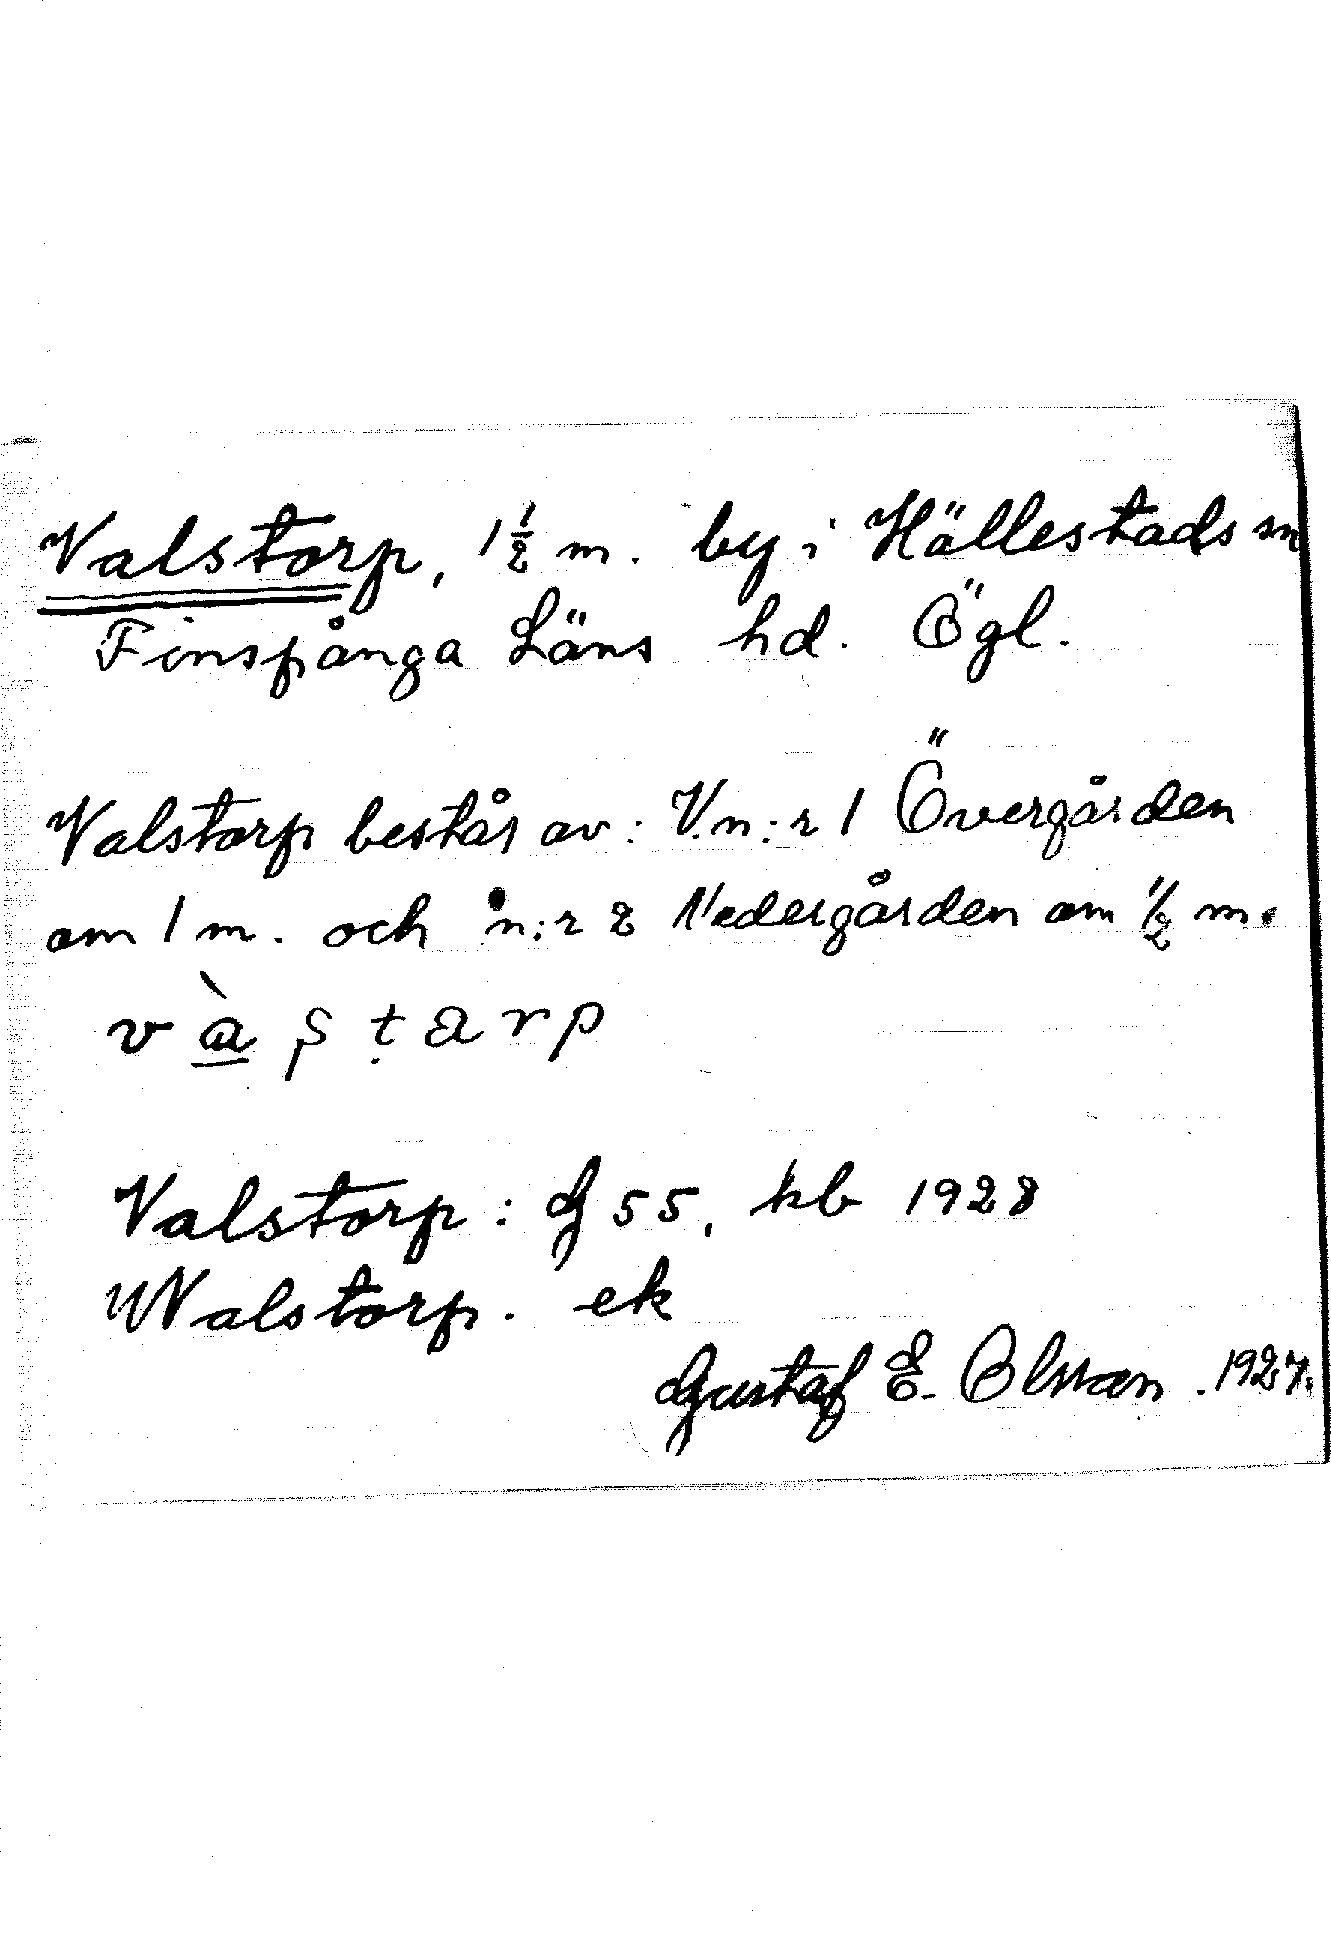 Valstorp, 1½ m. by i Hällestads sn
Finspånga Läns hd. Ögl.
Valstorp består av: V. n:r 1 Övergården
om 1 m. och n:r 2 Nedergården om ½ m.
Valstorp: G 55, kb 1928
Walstorp. ek
Gustaf E. Olsson. 1927.